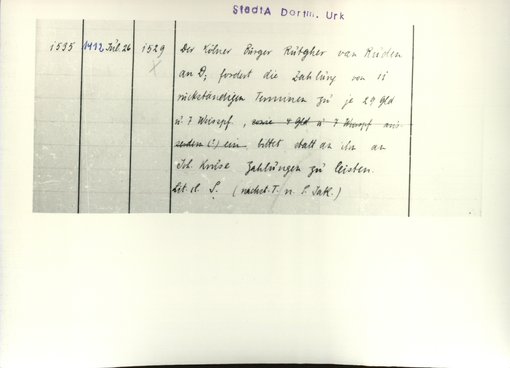 StadtA Dortm. Urk
1535 1412 Jul. 26 1529 Der Kölner Bürger Rutgher van Rüden
X an D; fordert die Zahlung von 11
rückständigen Terminen zu je 29 Gld
u 7 Weisspf, sowie 4 Gld u 7 Weisspf aus-
(?) ein bittet, statt an ihn an
Joh. Zahlungen zu leisten.
Lit. d. S. (nächst. T. n. S. Jak.)